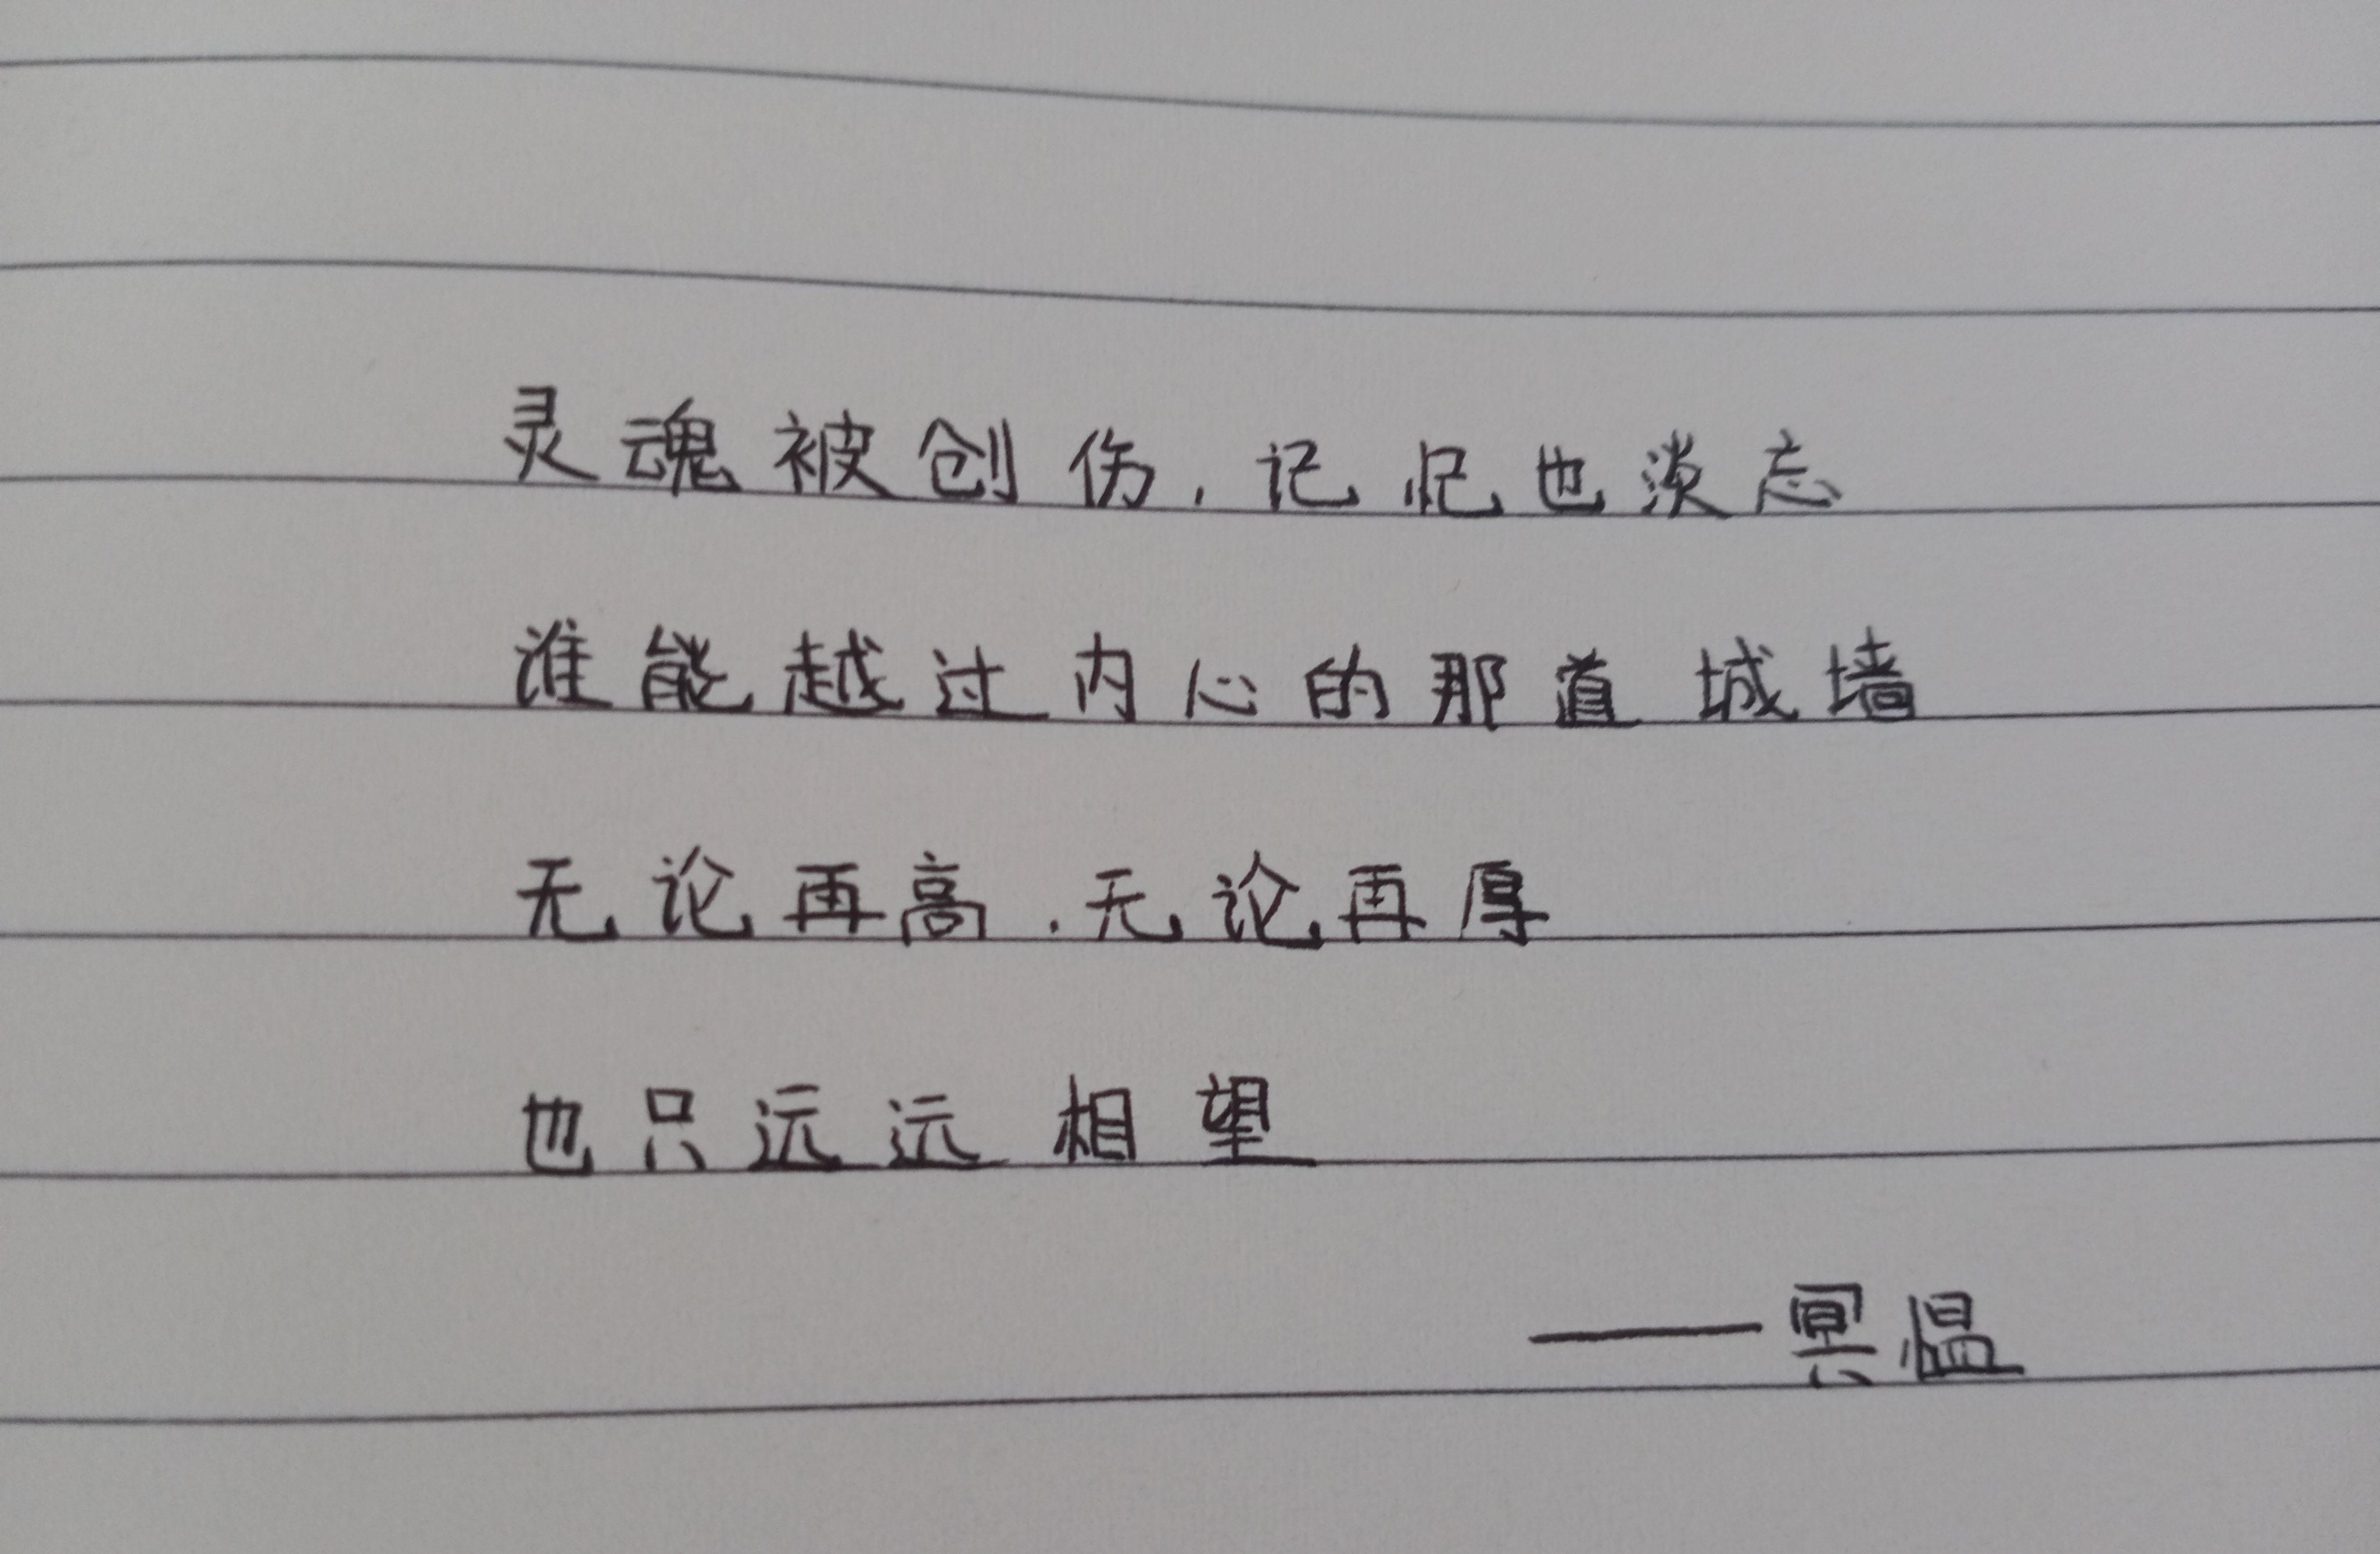 灵魂被创伤，记忆也淡忘
谁能越过内心的那道城墙
无论再高.无论再厚
也只远远相望
——冥愠